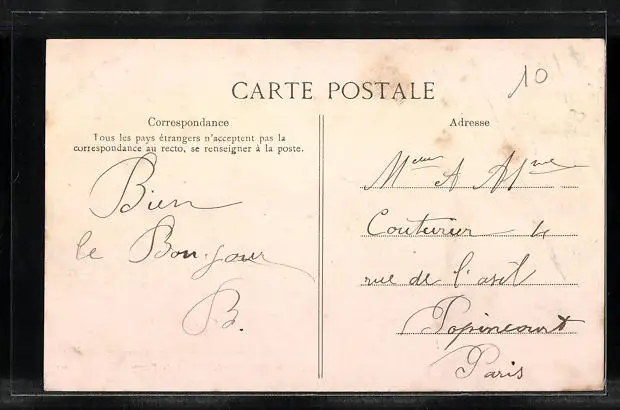 10
CARTE POSTALE
Correspondance
Tous les pays étrangers n'acceptent pas la
correspondance au recto, se renseigner à la poste.
Bien
le Bon-jour
B.
Adresse
A
Couturier 4
rue de l'asil
Popincourt
Paris